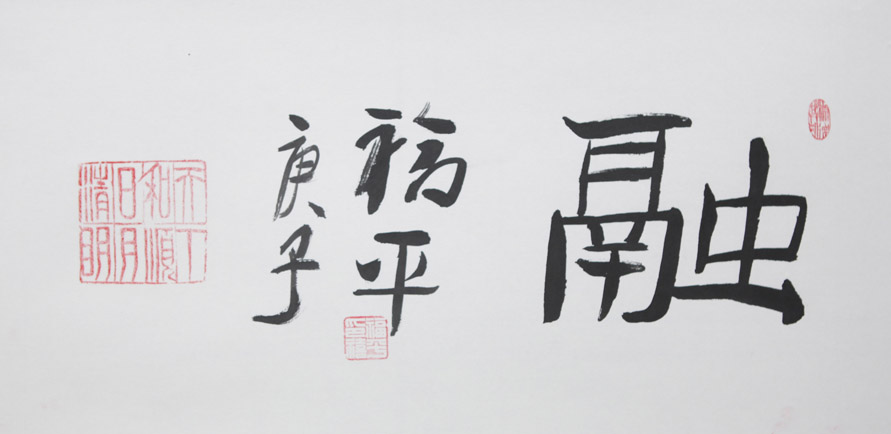 融
福平
庚子
天下
和順
日月
清明